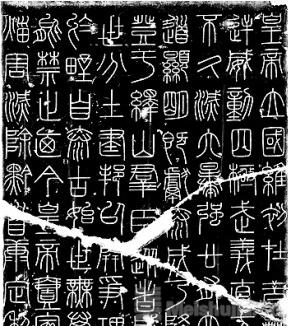 皇帝立國維初在昔
逆威動四極武義直
不久滅六暴強廿有六
道顯明既獻泰成乃降
登于繹山群臣從者
世分土建邦以開爭理
於野自泰古始世無萬
能禁止迺今皇帝壹家
災害滅除黔首康定